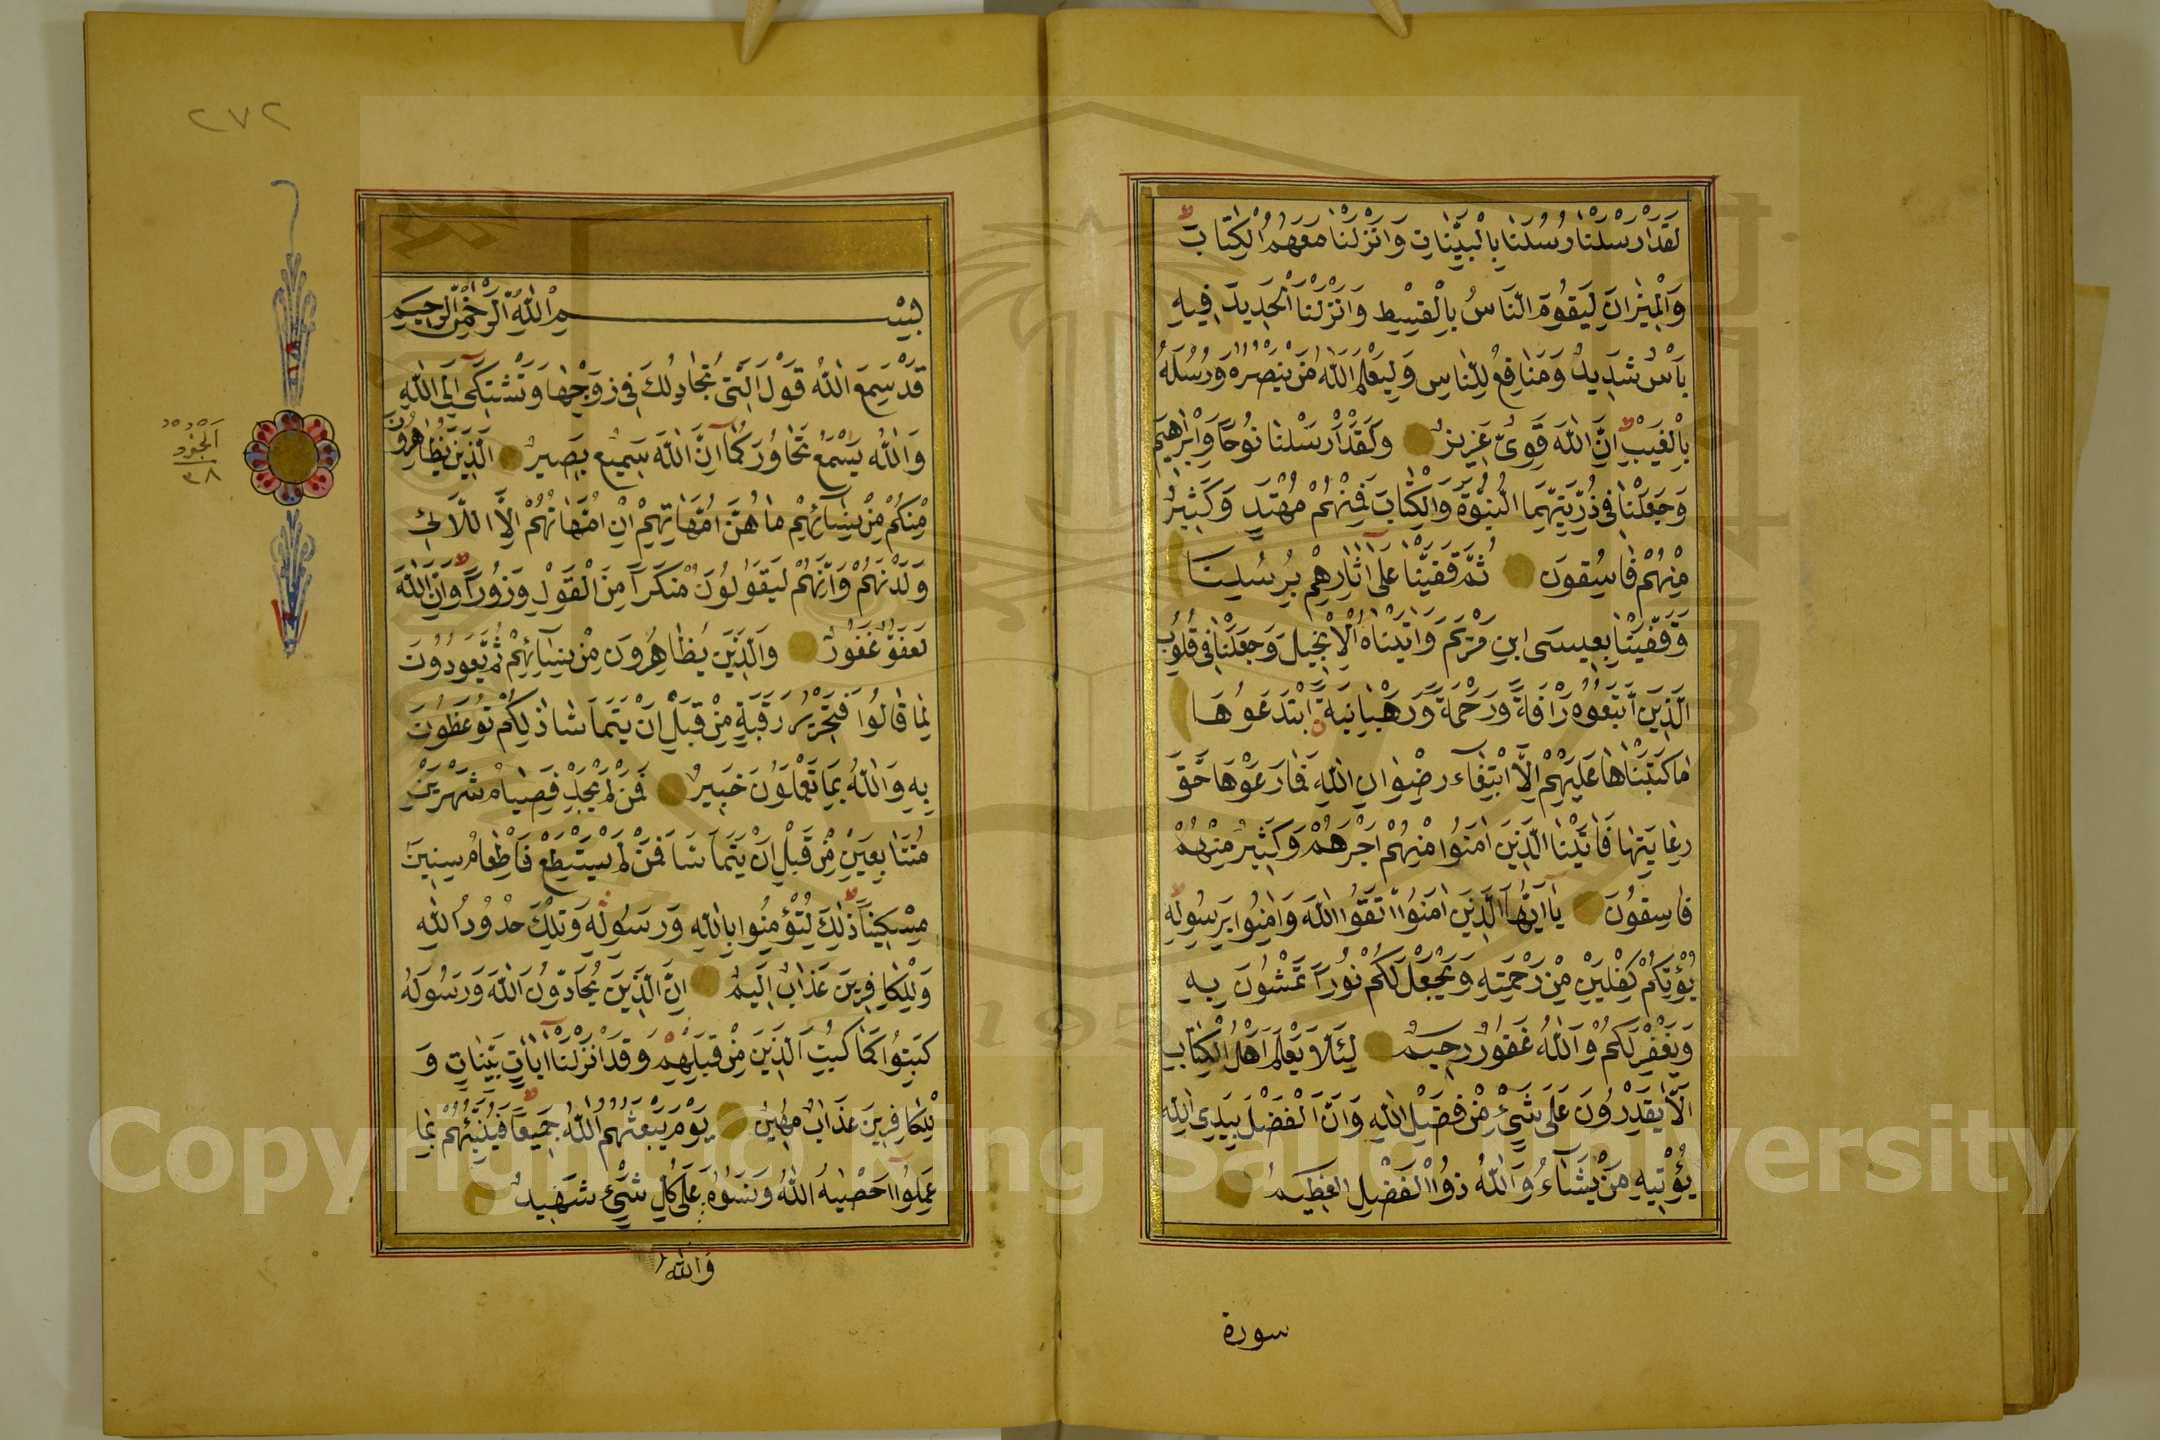 لَقَدْ اَرْسَلْنَا رُسُلَنَا بِالْبَيِّنَاتِ وَاَنْزَلْنَا مَعَهُمُ الْكِتَابَ
وَالْمِيْزَانَ لِيَقُومَ النَّاسُ بِالْقِسْطِ وَاَنْزَلْنَا الْحَدِيدَ فِيهِ
بَأْسٌ شَدِيدٌ وَمَنَافِعُ لِلنَّاسِ وَلِيَعْلَمَ اللّٰهُ مَنْ يَنْصُرُهُ وَرُسُلَهُ
بِالْغَيْبِ اِنَّ اللّٰهَ قَوِىٌّ عَزِيزٌ وَلَقَدْ اَرْسَلْنَا نُوحًا وَاِبْرٰهِيمَ
وَجَعَلْنَا فِى ذُرِّيَّتِهِمَا النُّبُوَّةَ وَالْكِتَابَ فَمِنْهُمْ مُهْتَدٍ وَكَثِيرٌ
مِنْهُمْ فَاسِقُونَ ثُمَّ قَفَّيْنَا عَلٰى اٰثَارِهِمْ بِرُسُلِنَا
وَقَفَّيْنَا بِعِيسَى ابْنِ مَرْيَمَ وَاٰتَيْنَاهُ الْاِنْجِيلَ وَجَعَلْنَا فِى قُلُوبِ
الَّذِينَ اتَّبَعُوهُ رَاْفَةً وَرَحْمَةً وَرَهْبَانِيَّةً ابْتَدَعُوهَا
مَا كَتَبْنَاهَا عَلَيْهِمْ اِلَّا ابْتِغَاءَ رِضْوَانِ اللّٰهِ فَمَا رَعَوْهَا حَقَّ
رِعَايَتِهَا فَاٰتَيْنَا الَّذِينَ اٰمَنُوا مِنْهُمْ اَجْرَهُمْ وَكَثِيرٌ مِنْهُمْ
فَاسِقُونَ يَا اَيُّهَا الَّذِينَ اٰمَنُوا اتَّقُوا اللّٰهَ وَاٰمِنُوا بِرَسُولِهِ
يُؤْتِكُمْ كِفْلَيْنِ مِنْ رَحْمَتِهِ وَيَجْعَلْ لَكُمْ نُورًا تَمْشُونَ بِهِ
وَيَغْفِرْ لَكُمْ وَاللّٰهُ غَفُورٌ رَحِيمٌ لِئَلَّا يَعْلَمَ اَهْلُ الْكِتَابِ
اَلَّا يَقْدِرُونَ عَلٰى شَىْءٍ مِنْ فَضْلِ اللّٰهِ وَاَنَّ الْفَضْلَ بِيَدِ اللّٰهِ
يُؤْتِيهِ مَنْ يَشَاءُ وَاللّٰهُ ذُو الْفَضْلِ الْعَظِيمِ
سورة
٢٧٢
بِسْمِ اللّٰهِ الرَّحْمٰنِ الرَّحِيمِ
قَدْ سَمِعَ اللّٰهُ قَوْلَ الَّتِى تُجَادِلُكَ فِى زَوْجِهَا وَتَشْتَكِى اِلَى اللّٰهِ
وَاللّٰهُ يَسْمَعُ تَحَاوُرَكُمَا اِنَّ اللّٰهَ سَمِيعٌ بَصِيرٌ اَلَّذِينَ يُظَاهِرُونَ
مِنْكُمْ مِنْ نِسَائِهِمْ مَا هُنَّ اُمَّهَاتِهِمْ اِنْ اُمَّهَاتُهُمْ اِلَّا اللَّائِى
وَلَدْنَهُمْ وَاِنَّهُمْ لَيَقُولُونَ مُنْكَرًا مِنَ الْقَوْلِ وَزُورًا وَاِنَّ اللّٰهَ
لَعَفُوٌّ غَفُورٌ وَالَّذِينَ يُظَاهِرُونَ مِنْ نِسَائِهِمْ ثُمَّ يَعُودُونَ
لِمَا قَالُوا فَتَحْرِيرُ رَقَبَةٍ مِنْ قَبْلِ اَنْ يَتَمَاسَّا ذٰلِكُمْ تُوعَظُونَ
بِهِ وَاللّٰهُ بِمَا تَعْمَلُونَ خَبِيرٌ فَمَنْ لَمْ يَجِدْ فَصِيَامُ شَهْرَيْنِ
مُتَتَابِعَيْنِ مِنْ قَبْلِ اَنْ يَتَمَاسَّا فَمَنْ لَمْ يَسْتَطِعْ فَاِطْعَامُ سِتِّينَ
مِسْكِينًا ذٰلِكَ لِتُؤْمِنُوا بِاللّٰهِ وَرَسُولِهِ وَتِلْكَ حُدُودُ اللّٰهِ
وَلِلْكَافِرِينَ عَذَابٌ اَلِيمٌ اِنَّ الَّذِينَ يُحَادُّونَ اللّٰهَ وَرَسُولَهُ
كُبِتُوا كَمَا كُبِتَ الَّذِينَ مِنْ قَبْلِهِمْ وَقَدْ اَنْزَلْنَا اٰيَاتٍ بَيِّنَاتٍ وَ
لِلْكَافِرِينَ عَذَابٌ مُهِينٌ يَوْمَ يَبْعَثُهُمُ اللّٰهُ جَمِيعًا فَيُنَبِّئُهُمْ بِمَا
عَمِلُوا اَحْصٰيهُ اللّٰهُ وَنَسُوهُ وَاللّٰهُ عَلٰى كُلِّ شَىْءٍ شَهِيدٌ
اَلْجُزْءُ
٢٨
Copyright © King Saud University